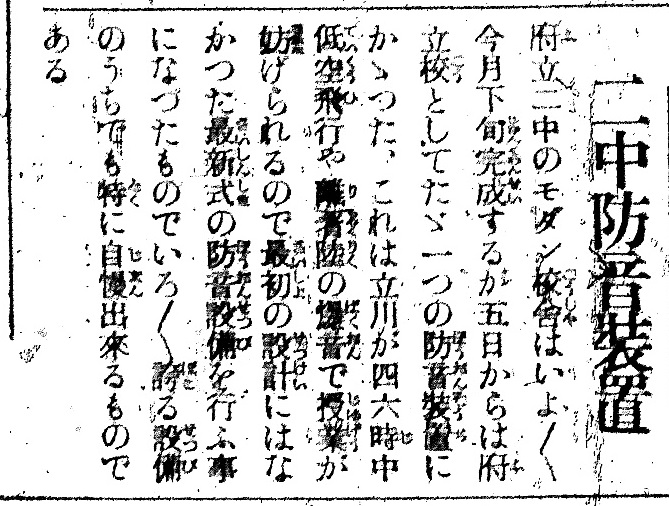 二中防音裝置
府立二中のモダン校舎はいよ〳〵
今月下旬完成するが五日からは府
立校としてたゞ一つの防音裝置に
かゝつた、これは立川が四六時中
低空飛行や離着陸の爆音で授業が
妨げられるので最初の設計にはな
かつた最新式の防音設備を行ふ事
になつたものでいろ〳〵誇る設備
のうちでも特に自慢出來るもので
ある